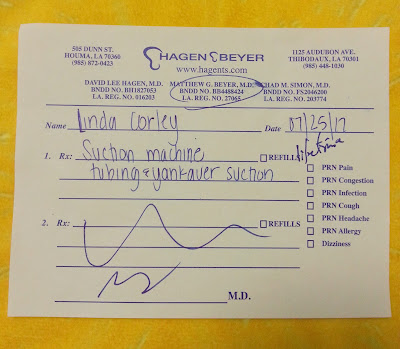 505 DUNN ST.
HOUMA, LA 70360
(985) 872-0423
HAGEN BEYER
www.hagents.com
1125 AUDUBON AVE.
THIBODAUX, LA 70301
(985) 448-1030
DAVID LEE HAGEN, M.D.
BNDD NO. BH1827053
LA. REG. NO. 016203
MATTHEW G. BEYER, M.D.
BNDD NO. BB4488424
LA. REG. NO. 27065
CHAD M. SIMON, M.D.
BNDD NO. FS2046200
LA. REG. NO. 203774
Name Linda Corley Date 07/25/17
1. Rx: Suction machine REFILLS lifetime
tubing & yankauer suction
PRN Pain
PRN Congestion
PRN Infection
PRN Cough
PRN Headache
PRN Allergy
Dizziness
2. Rx: REFILLS
M.D.